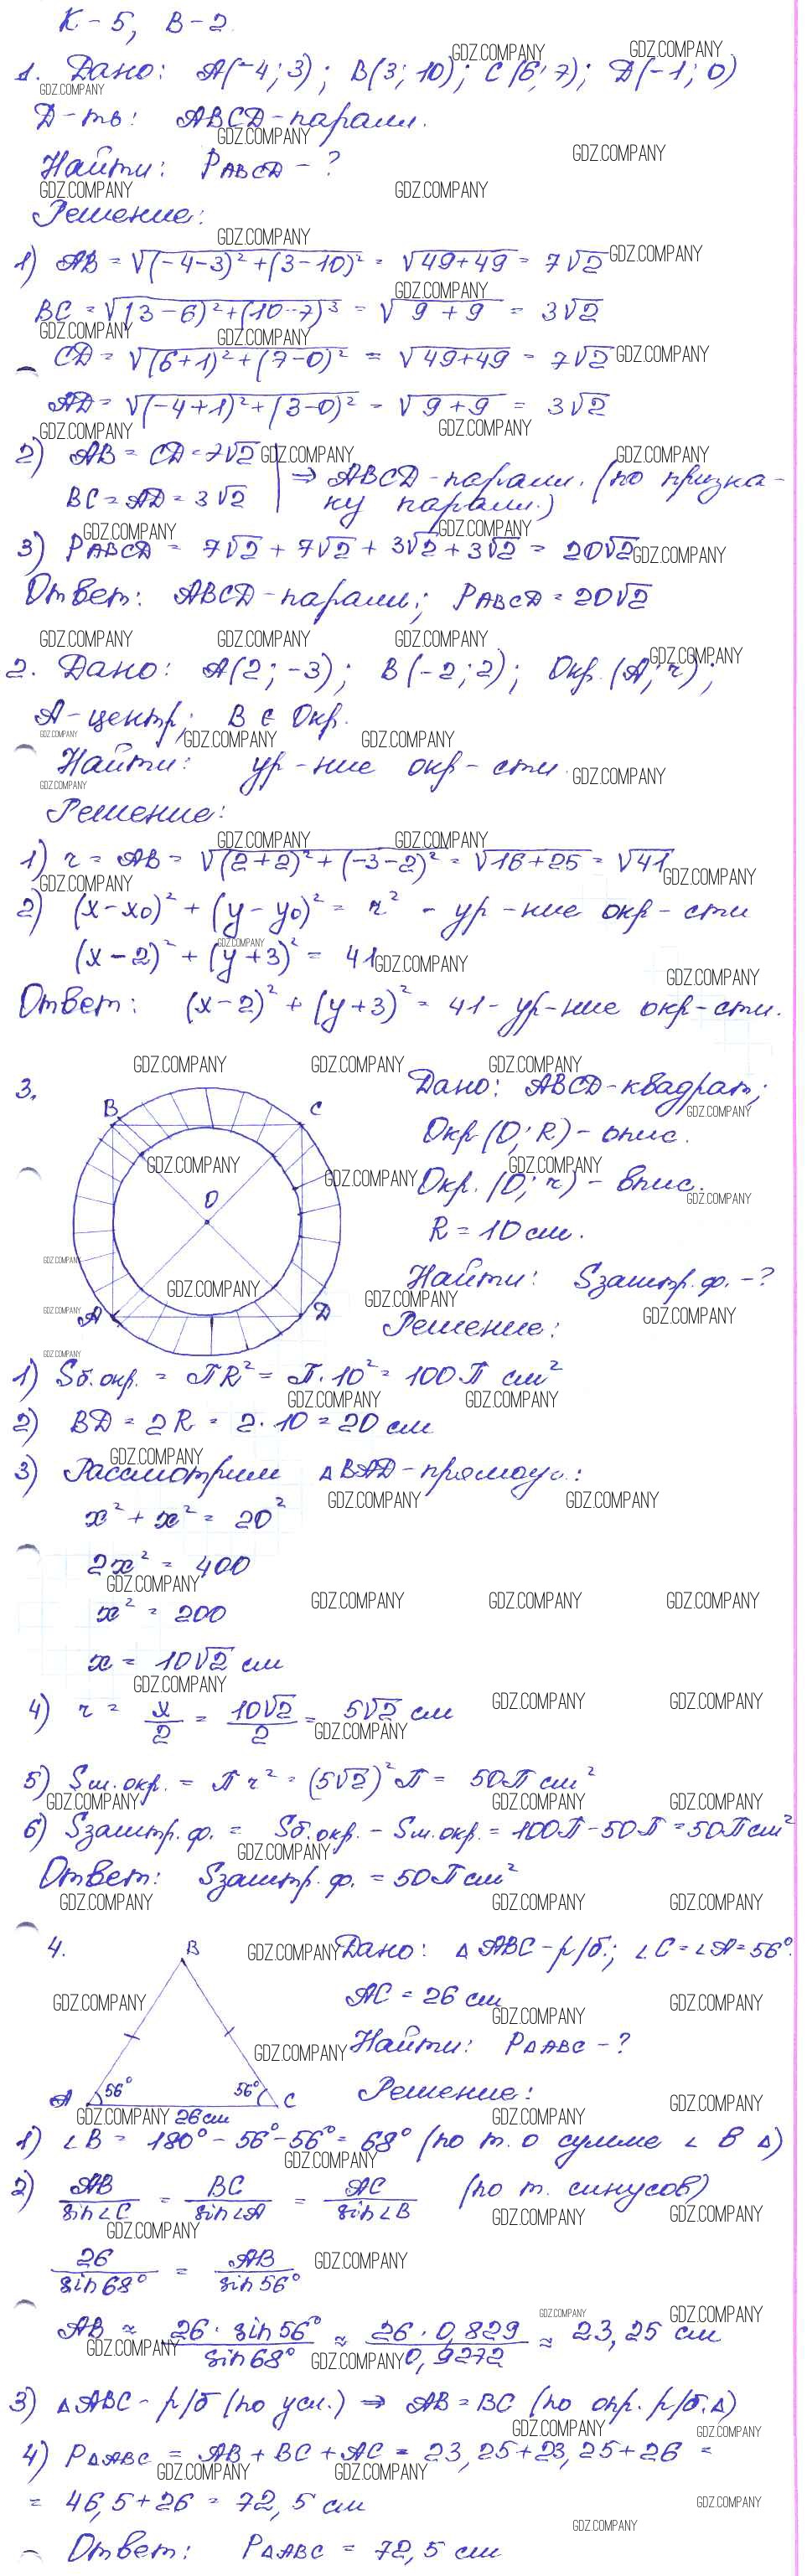 К-5, В-2.
1. Дано: A(-4; 3); B(3; 10); C(6; 7); D(-1; 0)
Д-ть: ABCD-парал.
Найти: P ABCD - ?
Решение:
1) AB = √(-4-3)² + (3-10)² = √49+49 = 7√2
BC = √(3-6)² + (10-7)³ = √9+9 = 3√2
CD = √(6+1)² + (7-0)² = √49+49 = 7√2
AD = √(-4+1)² + (3-0)² = √9+9 = 3√2
2) AB = CD = 7√2
BC = AD = 3√2 | ⇒ ABCD-парал. (по призна-
ку парал.)
3) P ABCD = 7√2 + 7√2 + 3√2 + 3√2 = 20√2
Ответ: ABCD-парал.; P ABCD = 20√2
2. Дано: A(2; -3); B(-2; 2); Окр. (A; r);
A-центр; B ∈ Окр.
Найти: ур-ние окр-сти.
Решение:
1) r = AB = √(2+2)² + (-3-2)² = √16+25 = √41
2) (x-x0)² + (y-y0)² = r² - ур-ние окр-сти
(x-2)² + (y+3)² = 41
Ответ: (x-2)² + (y+3)² = 41 - ур-ние окр-сти.
3.
B C
O
A D
Дано: ABCD-квадрат;
Окр (O; R) - опис.
Окр. (O; r) - впис.
R = 10 см.
Найти: Sзаштр.ф. - ?
Решение:
1) Sб.окр. = πR² = π·10² = 100π см²
2) BD = 2R = 2·10 = 20 см
3) Рассмотрим △BAD-прямоуг.:
x² + x² = 20²
2x² = 400
x² = 200
x = 10√2 см
4) r = x/2 = 10√2/2 = 5√2 см
5) Sм.окр. = πr² = (5√2)²π = 50π см²
6) Sзаштр.ф. = Sб.окр. - Sм.окр. = 100π - 50π = 50π см²
Ответ: Sзаштр.ф. = 50π см²
4.
B
A 56° 56° C
26 см
Дано: △ABC - р/б.; ∠C = ∠A = 56°.
AC = 26 см
Найти: P△ABC - ?
Решение:
1) ∠B = 180° - 56° - 56° = 68° (по т. о сумме ∠ в △)
2) AB/sin∠C = BC/sin∠A = AC/sin∠B (по т. синусов)
26/sin68° = AB/sin56°
AB ≈ 26·sin56°/sin68° ≈ 26·0,829/0,9272 ≈ 23,25 см
3) △ABC - р/б (по усл.) ⇒ AB = BC (по опр. р/б. △)
4) P△ABC = AB + BC + AC = 23,25 + 23,25 + 26 =
= 46,5 + 26 = 72,5 см
Ответ: P△ABC = 72,5 см
GDZ.COMPANY